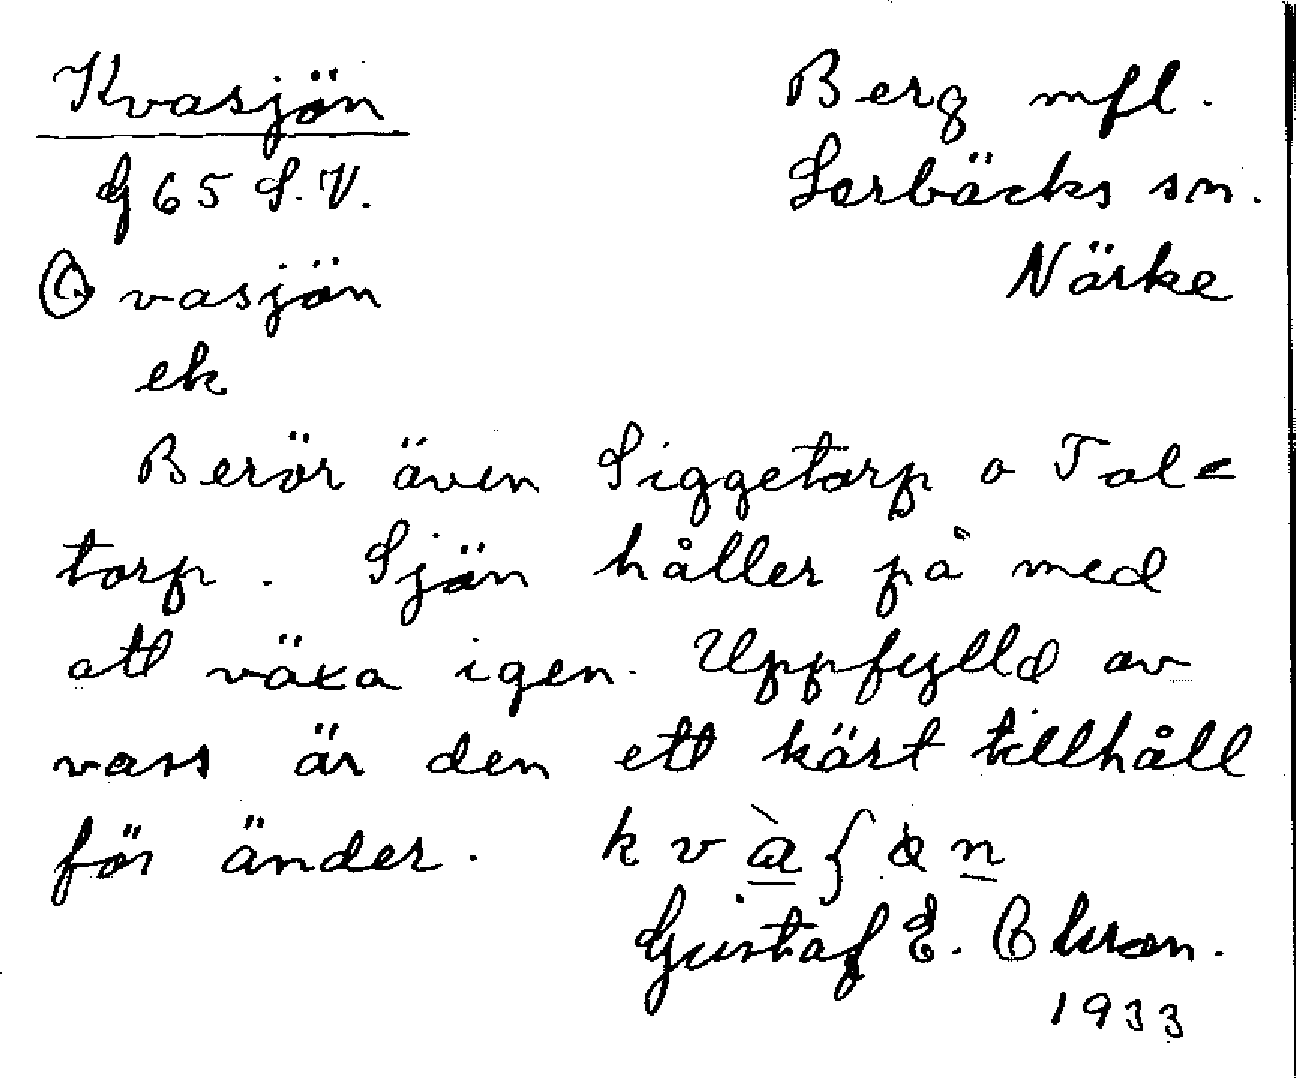 Kvasjön
Berg mfl.
G 65 S.V.
Lerbäcks sn.
Qvasjön
Närke
ek
Berör även Siggetorp o Tol=
torp. Sjön håller på med
att växa igen. Uppfylld av
vass är den ett kärt tillhåll
för änder. kv
Gustaf E.
1933